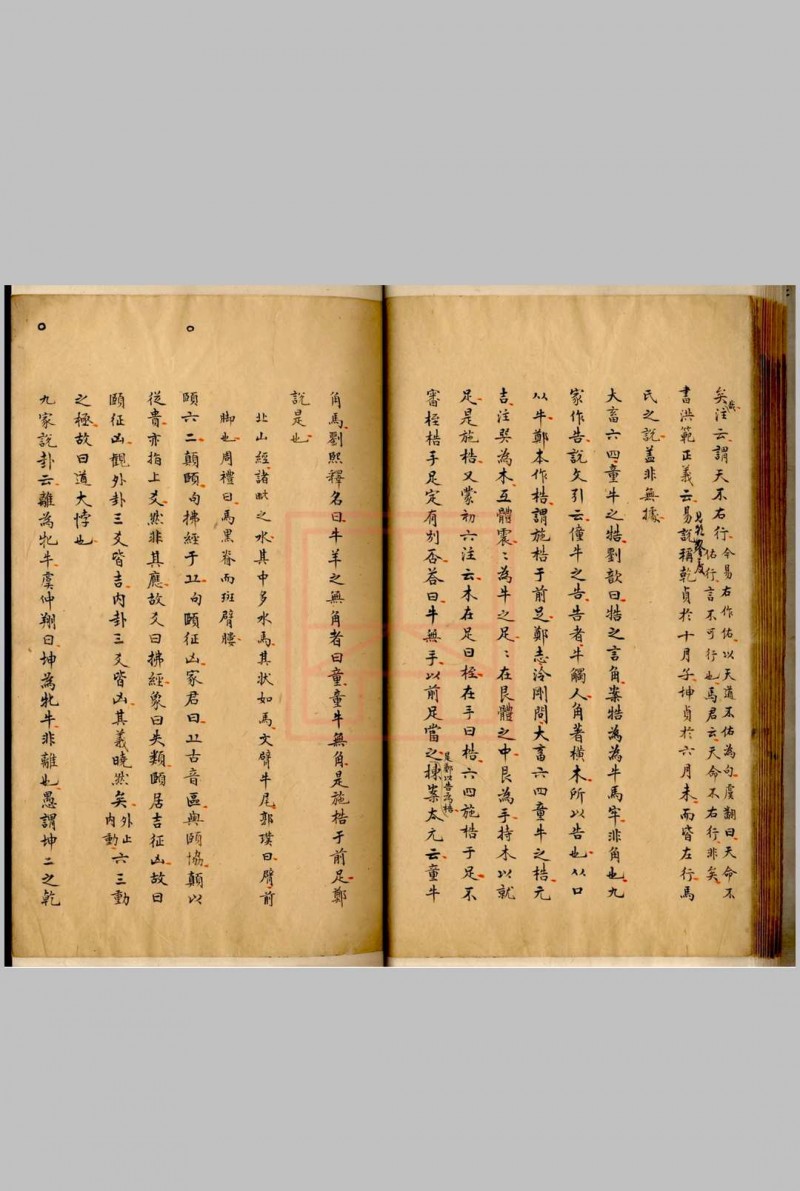 矣注云謂天不右行令易右作佑以天道不佑為句虞翻曰天命不
佑行言不可行也馬君云天命不右行非矣
書洪範正義云易說稱乾貞於十月子坤貞於六月未而皆左行馬
見乾鑿度
氏之說盖非無據
大畜六四童牛之牿劉歆曰牿之言角案牿為為牛馬牢非角也九
家作告說文引云僮牛之告告者牛觸人角著橫木所以告也从口
从牛鄭本作梏謂施梏于前足鄭志泠剛問大畜六四童牛之梏元
吉注巽為木互體震:為牛之足:在艮體之中艮為手持木以就
足是施梏又蒙初六注云木在足曰桎在手曰梏六四施梏于足不
審桎梏手足定有別否荅曰牛無手以前足當之是鄭以告為梏案太元云童牛
角馬劉熙釋名曰牛羊之無角者曰童童牛無角是施梏于前足鄭
說是也
北山經諸毗之水其中多水馬其狀如馬文臂牛尾郭璞曰臂前
脚也周禮曰馬黑脊而斑臂膢
頤六二顛頤句拂經于丠句頤征凶家君曰丠古音區與頤協顛以
從貴亦指上爻然非其應故爻曰拂經象曰失類頤居吉征凶故曰
頤征凶觀外卦三爻皆吉內卦三爻皆凶其義曉然矣外止內動六三動
之極故曰道大悖也
九家說卦云離為牝牛虞仲翔曰坤為牝牛非離也愚謂坤二之乾